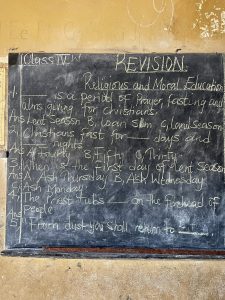 Class IV
REVISION.
Religious and Moral Education
1. ___ is a period of Prayer, fasting and
alms giving for christians.
Ans Lent Season B,
2. Christians fast for ___ days and
nights
Ans A, Fourty B, Fifty C, Thirty
3. When is the first day of lent Season
Ans A, Ash Thursday B, Ash Wednesday
C, Ash Monday
4. The Priest rubs ___ on the forehead of
people
Ans
5. "From dust you shall return to ___
Ans